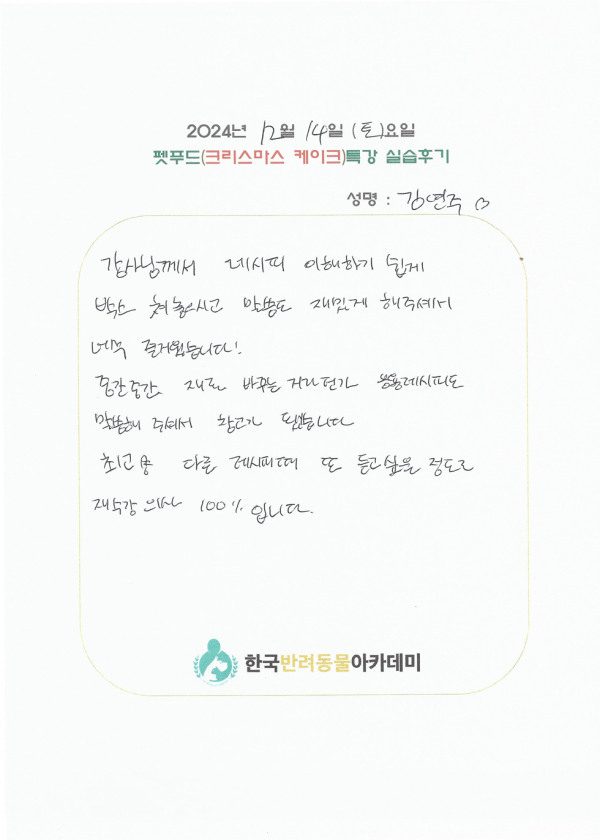 2024년 12월 14일 (토)요일
펫푸드(크리스마스 케이크)특강 실습후기
성명 : 김연주
강사님께서 레시피 이해하기 쉽게
박스 쳐놓으시고 말씀도 재밌게 해주셔서
너무 즐거웠습니다!
중간중간 재료 바꾸는거라던가 응용레시피도
말씀해 주셔서 참고가 됐습니다
최고 다른 레시피때 또 듣고싶을 정도로
재수강 의사 100% 입니다.
한국반려동물아카데미